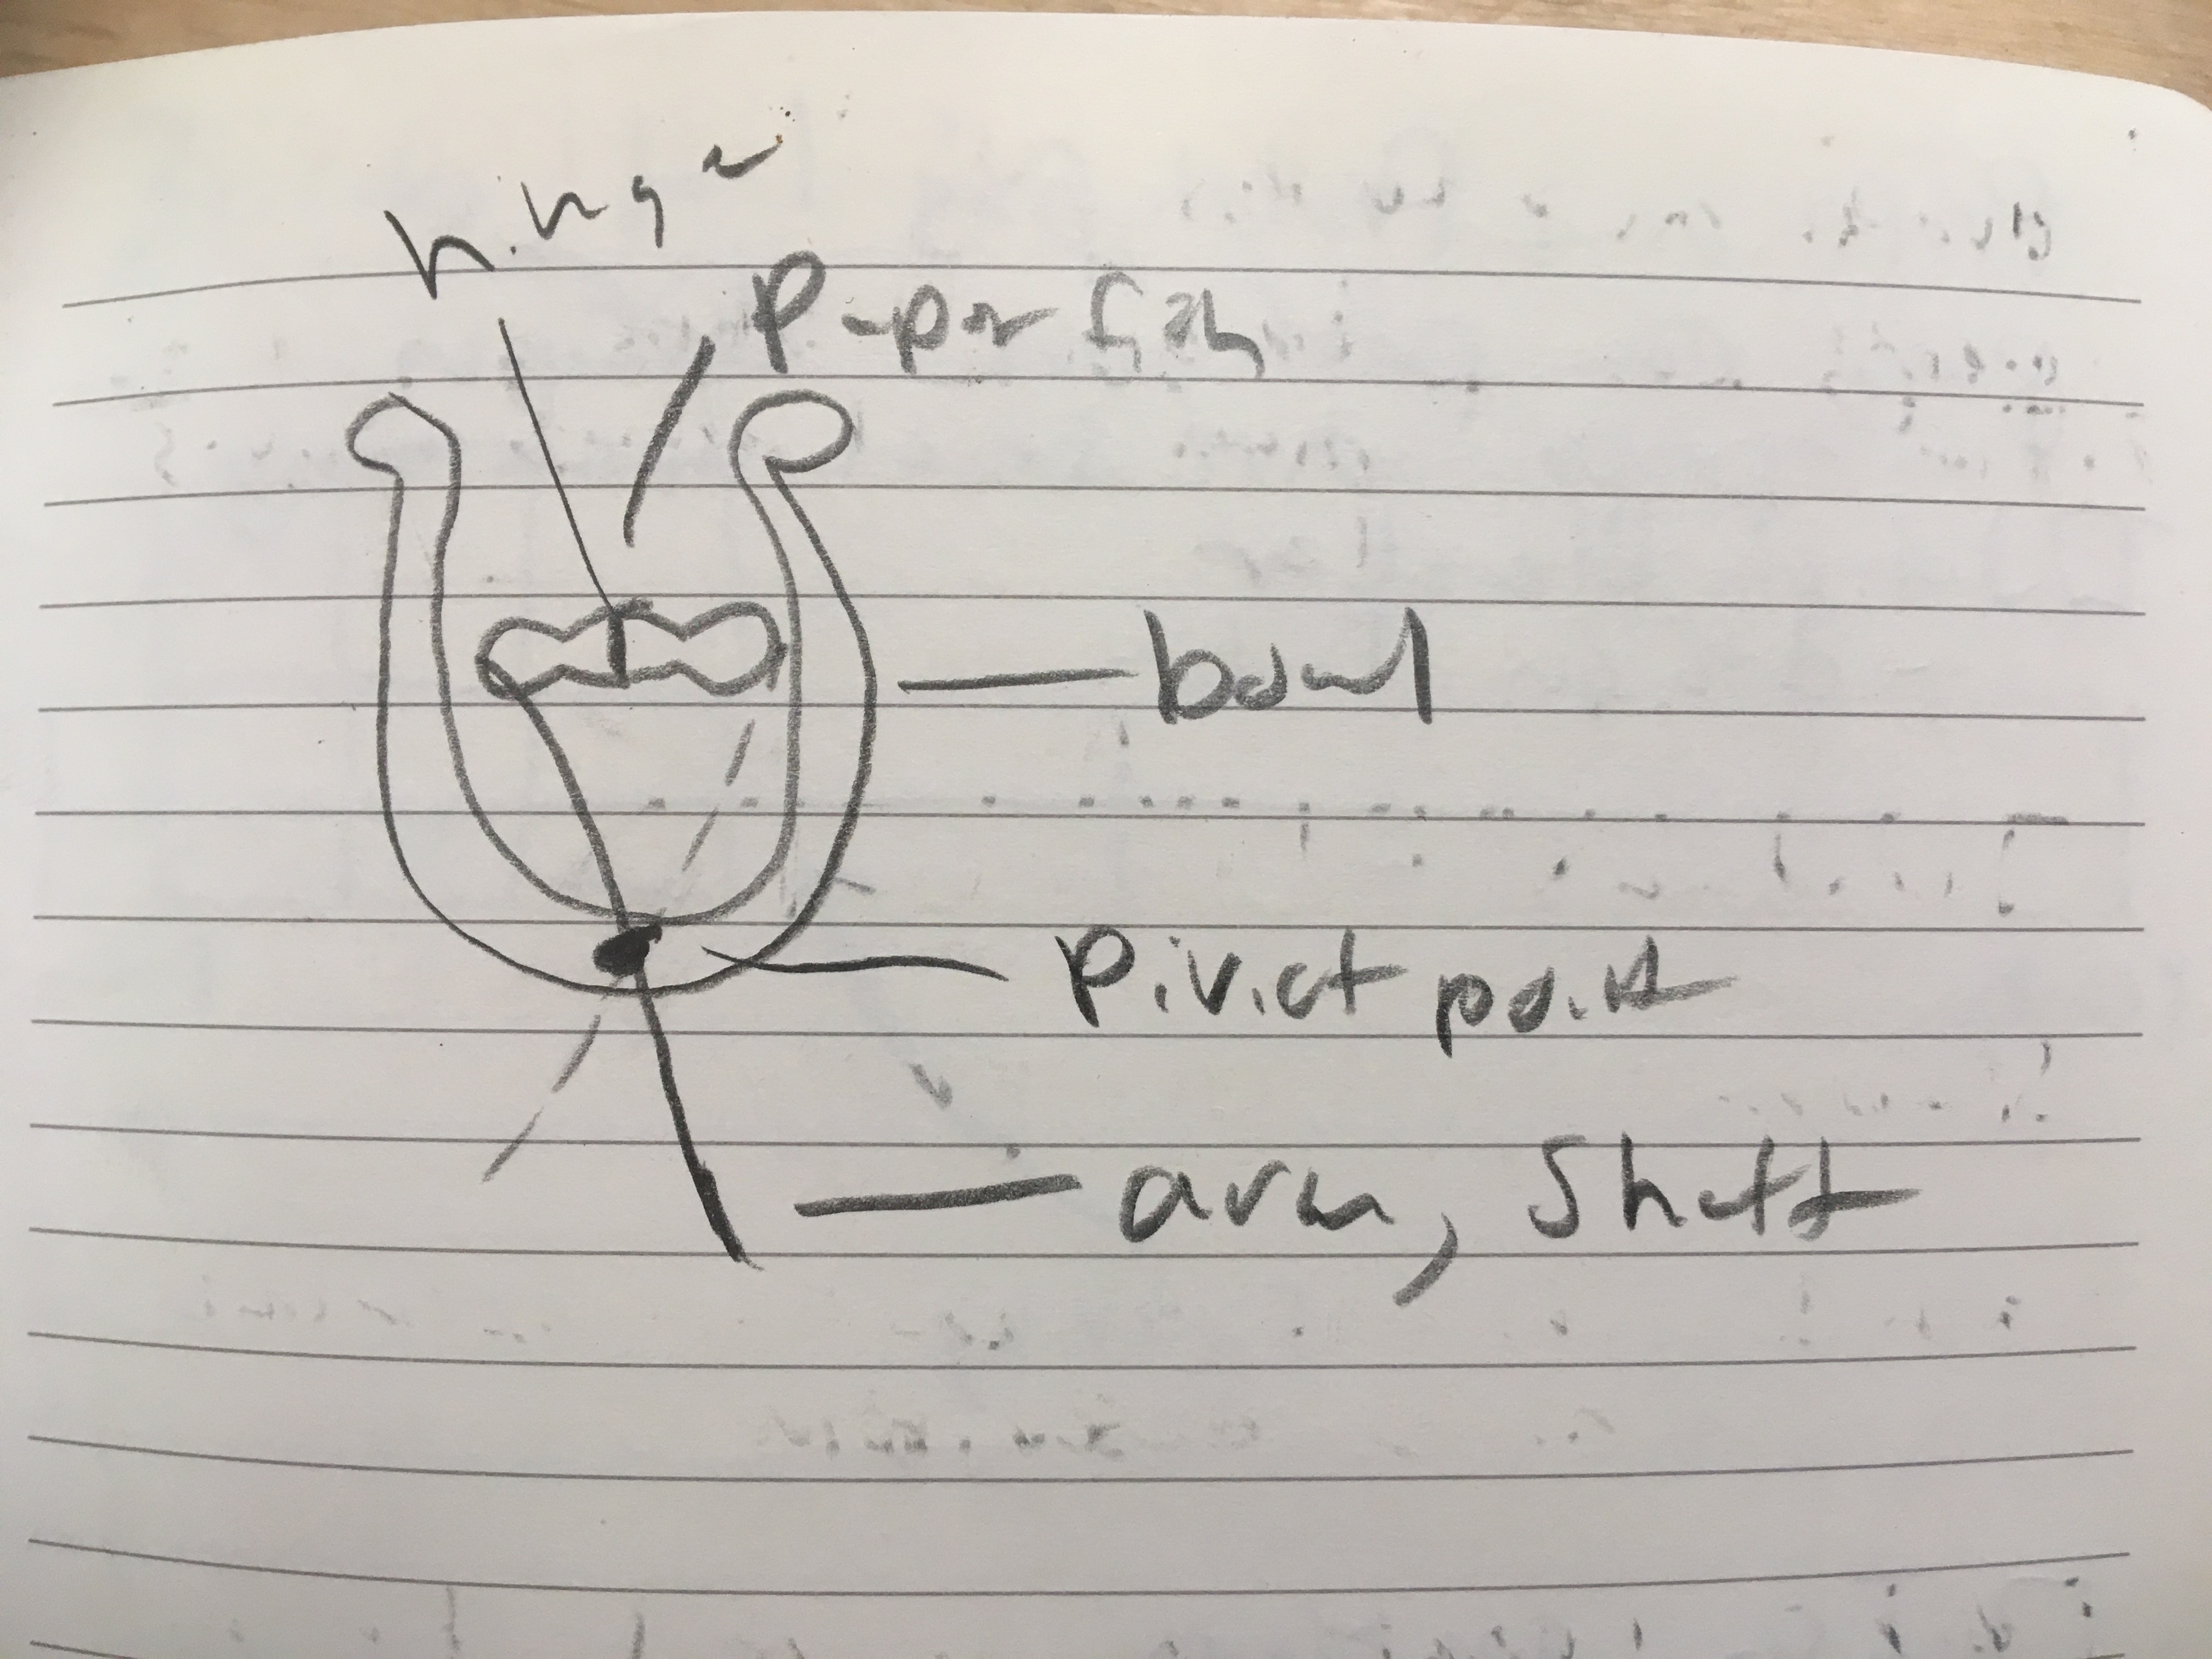 hinge
Paper fish
bowl
Pivot point
arm, Shaft